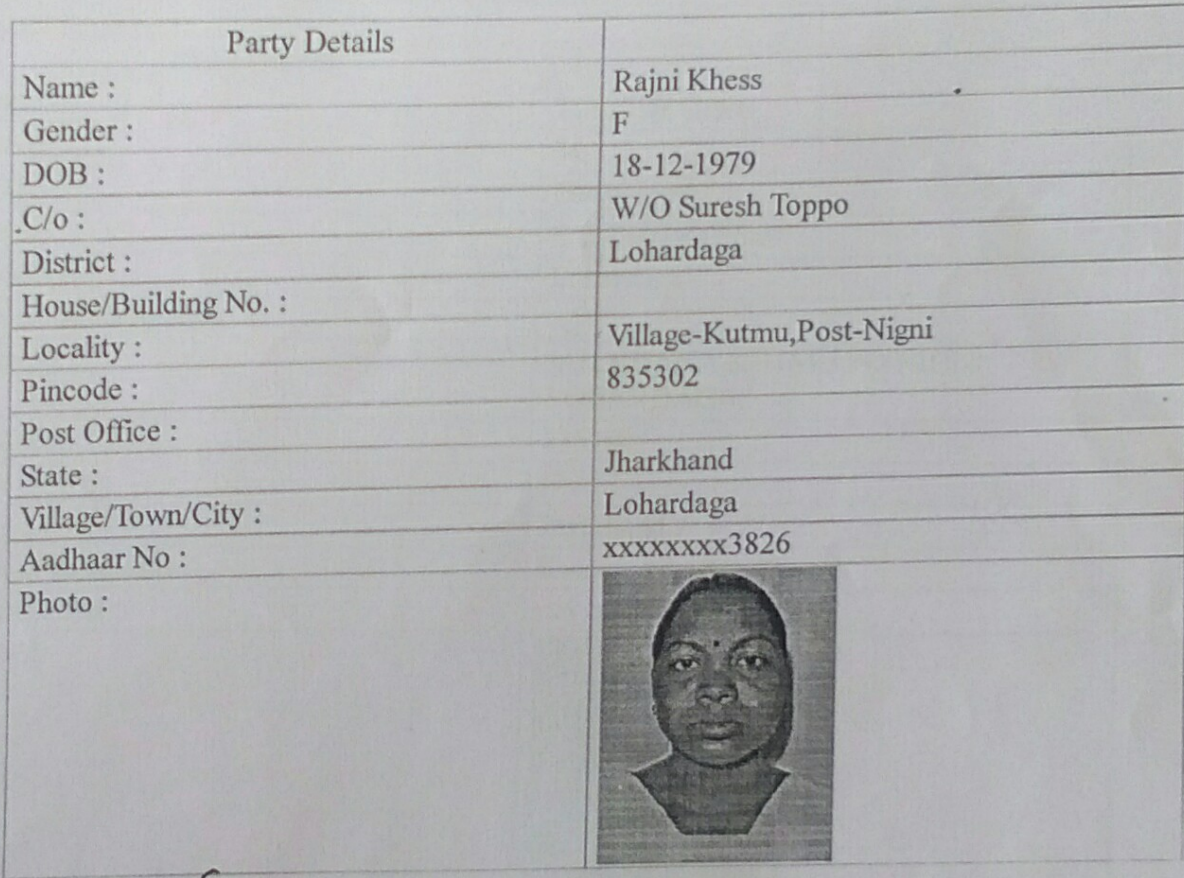 Party Details
Name : Rajni Khess
Gender : F
DOB : 18-12-1979
C/o : W/O Suresh Toppo
District : Lohardaga
House/Building No. :
Locality : Village-Kutmu,Post-Nigni
Pincode : 835302
Post Office :
State : Jharkhand
Village/Town/City : Lohardaga
Aadhaar No : xxxxxxxx3826
Photo :